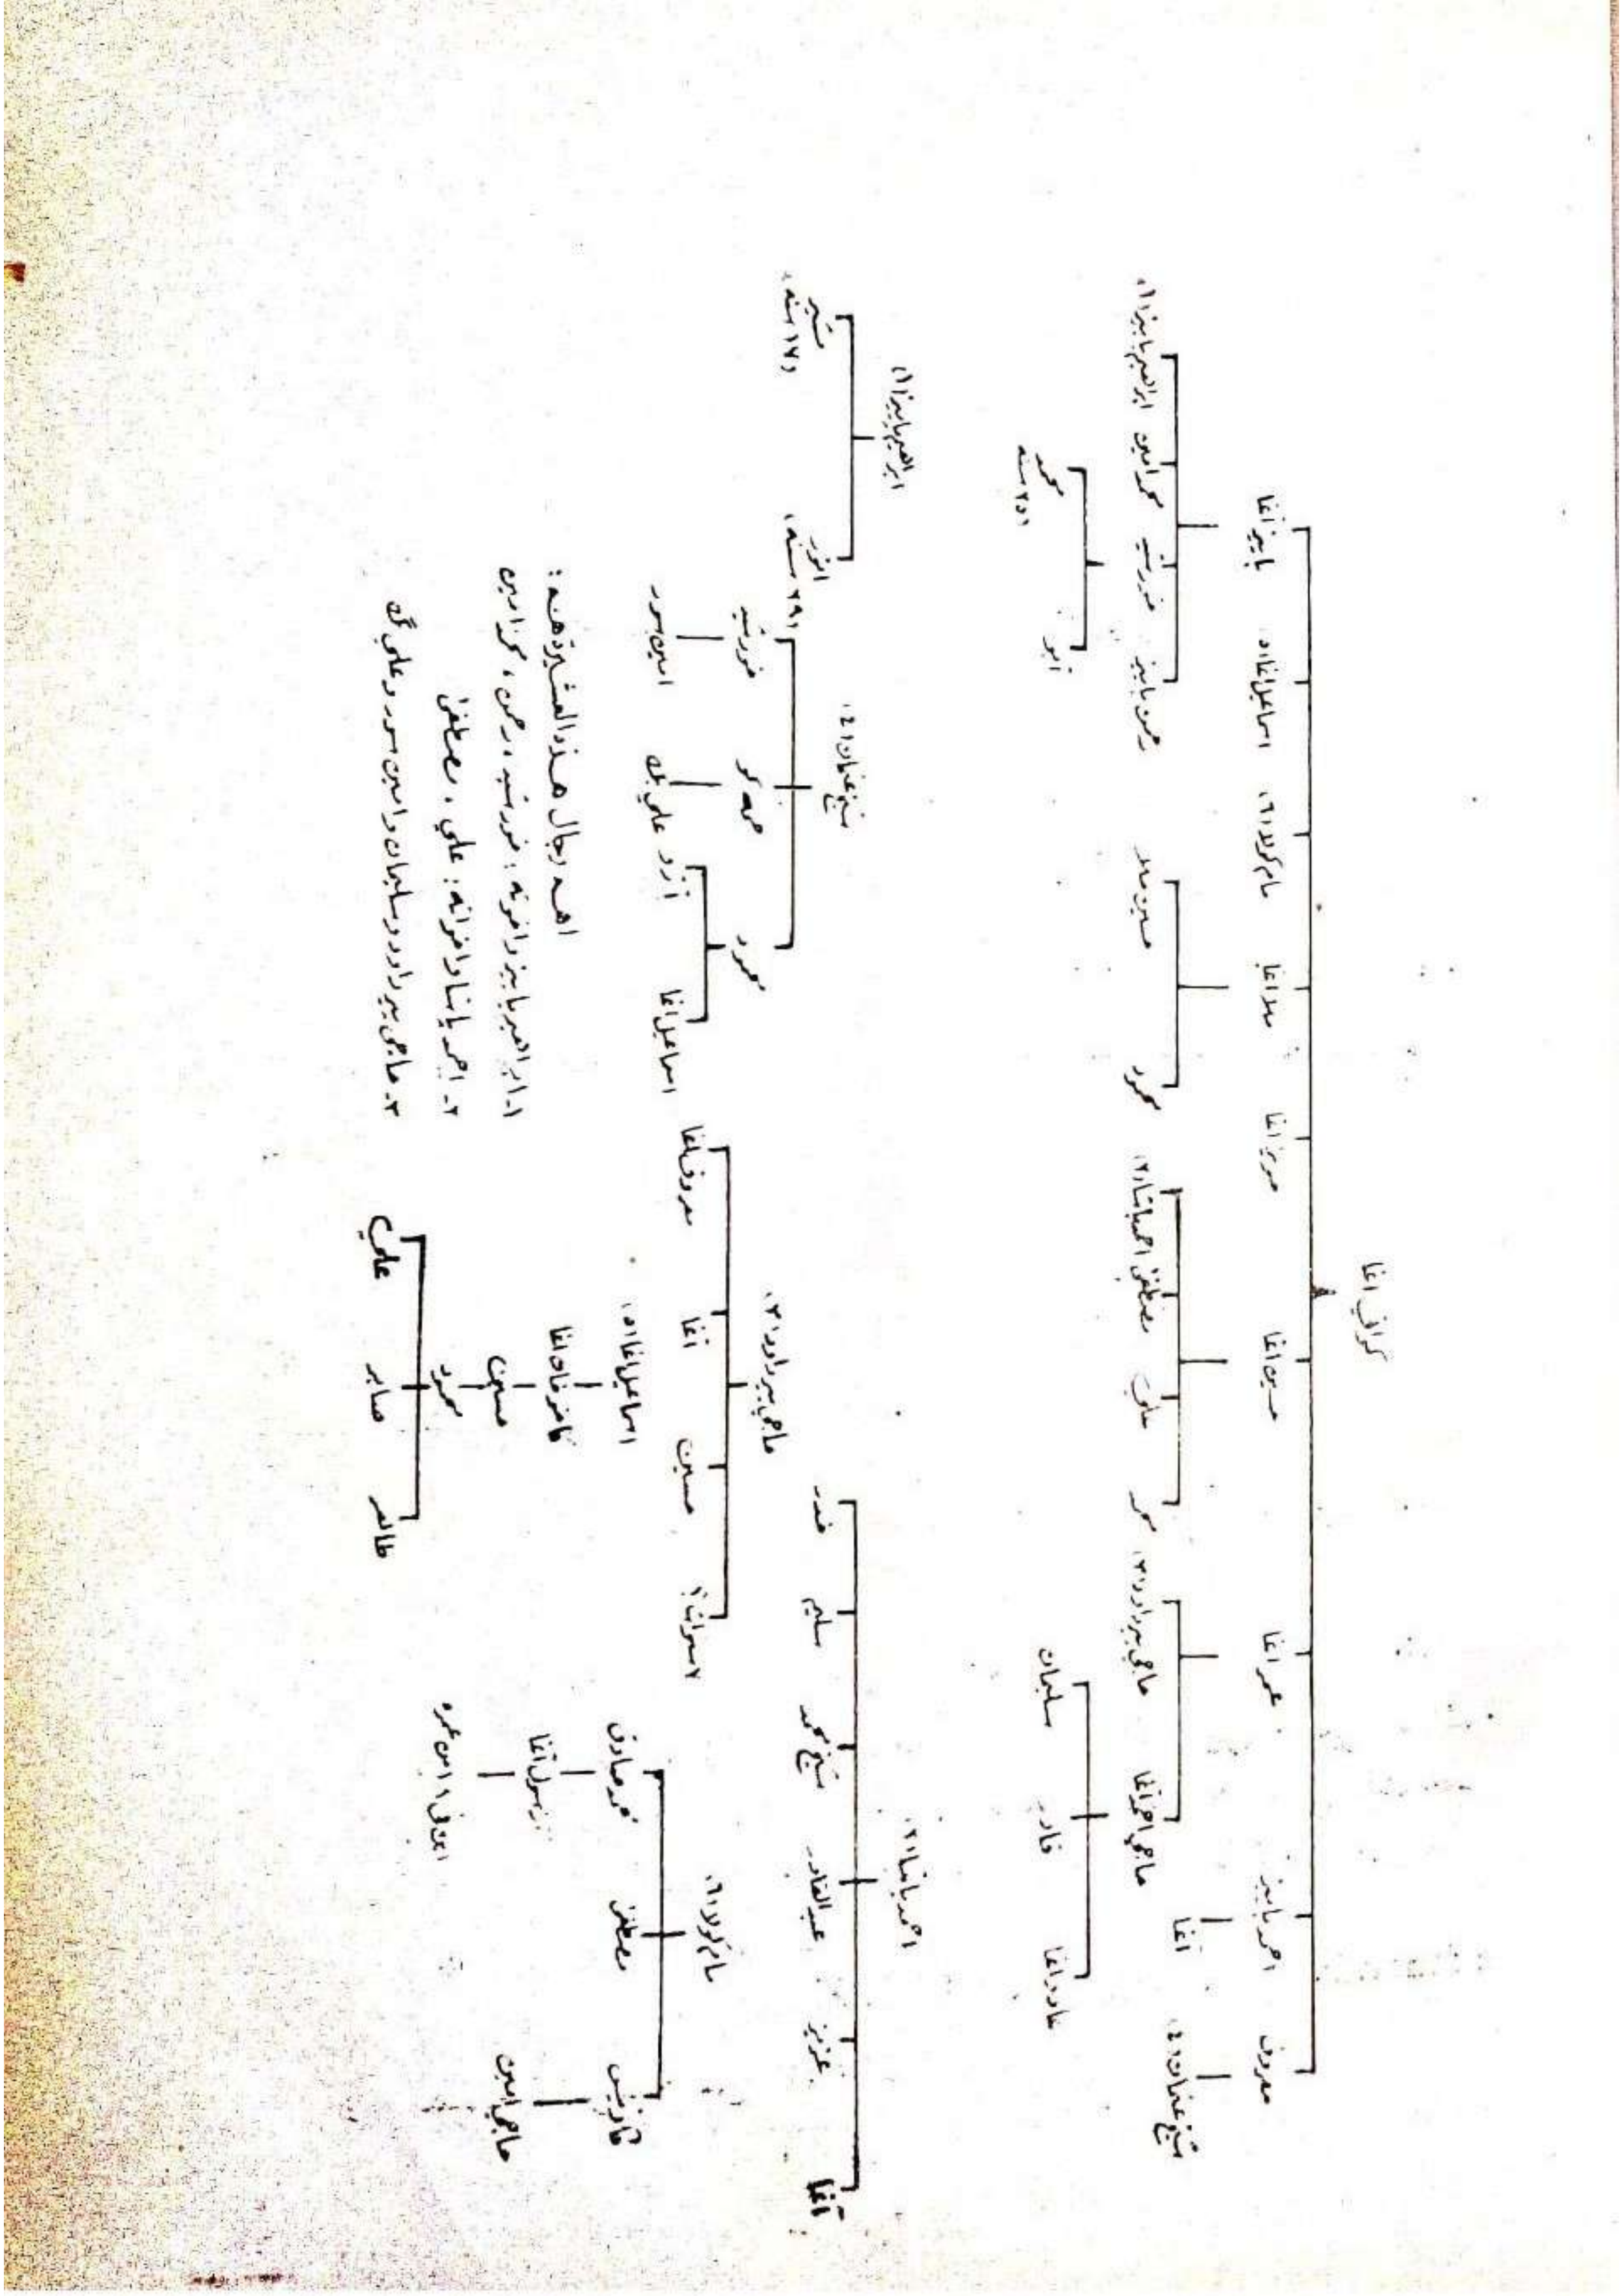 كراني اغا
معروف
احمد بابيز
عمر اغا
حسين اغا
ملا اغا
مام كولا (٦)
اسماعيل اغا (٥)
بابيز اغا
شيخ عثمان (٤)
آغا
حاجي احمد آغا
حاجي بير داود (٣)
محمد
علي
مصطفى
احمد باشا (٢)
محمود
حسين ملا
رحمن بابيز
خورشيد
محمد امين
ابراهيم بابيز (١)
قادر
سليمان
محمد
(٢٥ سنه)
احمد باشا (٢)
آغا
عزيز
عبدالقادر
شيخ محمد
سليم
خدر
ابراهيم بابيز (١)
انور
(٢٩ سنه)
مشير
(١٧ سنه)
شيخ عثمان (٤)
محمود
خورشيد
اسماعيل اغا
آزاد
علي بك
امين سور
حاجي بير داود (٣)
٧ سنوات؟
حسين
آغا
معروف اغا
مام كولا (٦)
مصطفى
محمد صادق
حاجي امين
رسول آغا
اسماعيل اغا (٥)
كاخر فان اغا
حسين
محمود
طاهر
صابر
علي
اهم رجال هذه العشيرة هم :
١- ابراهيم بابيز واخوته : خورشيد ، رحمن ، محمد امين
٢- احمد باشا واخوانه : علي ، مصطفى
٣- حاجي بير داود وسليمان وامين سور وعلي بك